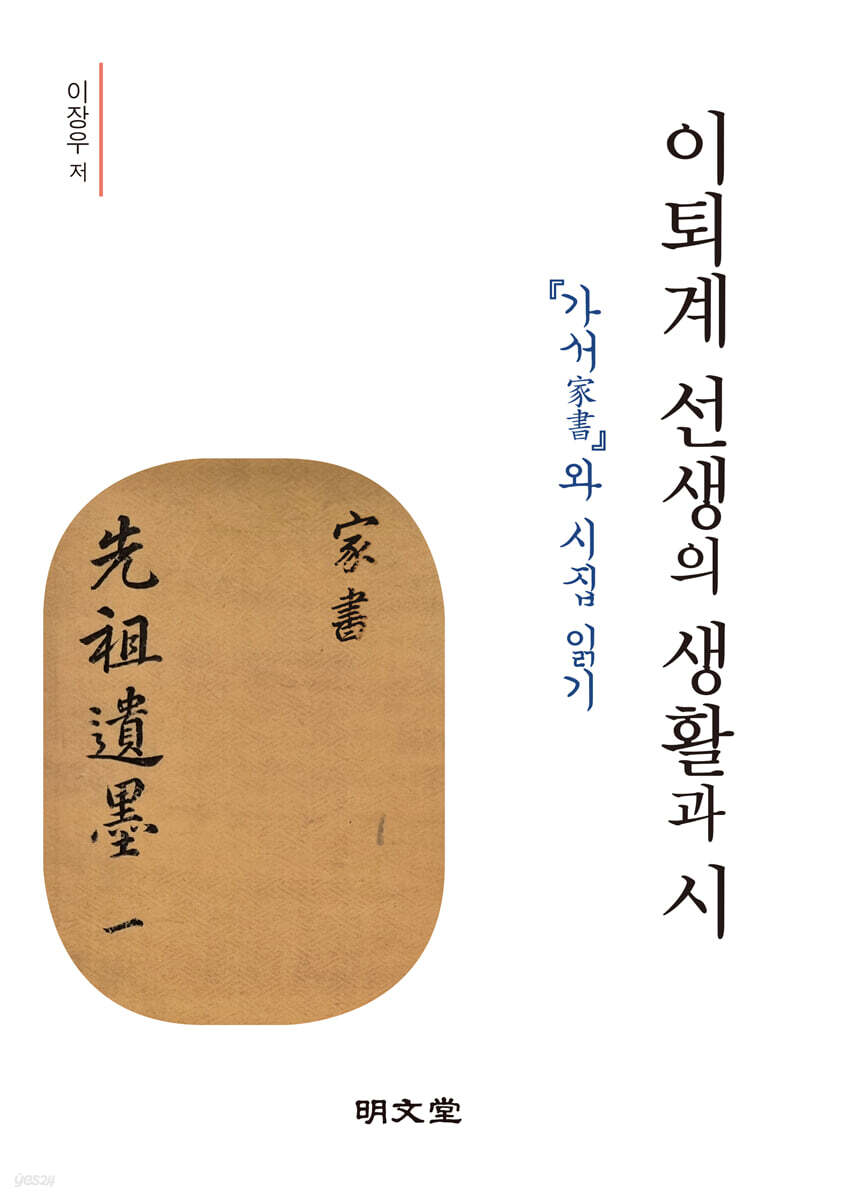 이퇴계 선생의 생활과 시
『가서家書』와 시집 읽기
이장우 저
家書
先祖遺墨 一
明文堂
yes24